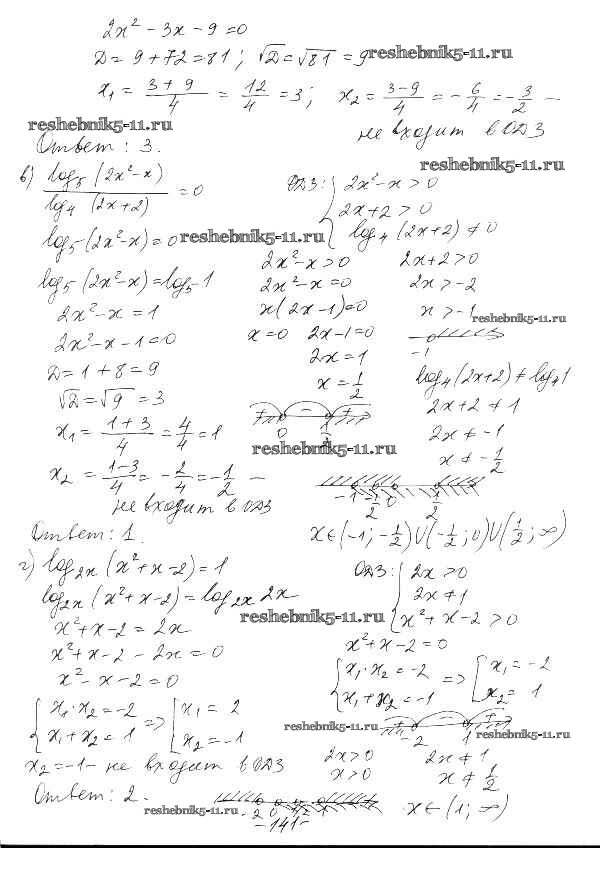 2x² - 3x - 9 = 0
D = 9 + 72 = 81; √D = √81 = 9
reshebnik5-11.ru
x₁ = (3+9)/4 = 12/4 = 3; x₂ = (3-9)/4 = -6/4 = -3/2 —
не входит в ОДЗ
reshebnik5-11.ru
Ответ: 3.
reshebnik5-11.ru
в) log₅(2x²-x)/log₄(2x+2) = 0
log₅(2x²-x) = 0
reshebnik5-11.ru
log₅(2x²-x) = log₅1
2x²-x = 1
2x²-x-1 = 0
D = 1+8 = 9
√D = √9 = 3
x₁ = (1+3)/4 = 4/4 = 1
x₂ = (1-3)/4 = -2/4 = -1/2 —
не входит в ОДЗ
Ответ: 1.
ОДЗ: { 2x²-x > 0
2x+2 > 0
log₄(2x+2) ≠ 0
2x²-x > 0
2x²-x = 0
x(2x-1) = 0
x = 0 2x-1 = 0
2x = 1
x = 1/2
+ - +
0 1/2
reshebnik5-11.ru
2x+2 > 0
2x > -2
x > -1
reshebnik5-11.ru
-1
log₄(2x+2) ≠ log₄1
2x+2 ≠ 1
2x ≠ -1
x ≠ -1/2
-1 -1/2 0 1/2
x∈(-1; -1/2)∪(-1/2; 0)∪(1/2; ∞)
г) log₂ₓ(x²+x-2) = 1
log₂ₓ(x²+x-2) = log₂ₓ 2x
reshebnik5-11.ru
x²+x-2 = 2x
x²+x-2-2x = 0
x²-x-2 = 0
{ x₁·x₂ = -2
x₁+x₂ = 1 => [ x₁ = 2
x₂ = -1
x₂ = -1 - не входит в ОДЗ
Ответ: 2.
ОДЗ: { 2x > 0
2x ≠ 1
x²+x-2 > 0
x²+x-2 = 0
{ x₁·x₂ = -2
x₁+x₂ = -1 => [ x₁ = -2
x₂ = 1
reshebnik5-11.ru
-2 1
reshebnik5-11.ru
2x > 0 2x ≠ 1
x > 0 x ≠ 1/2
reshebnik5-11.ru
-2 0 1/2 1
x∈(1; ∞)
-141-